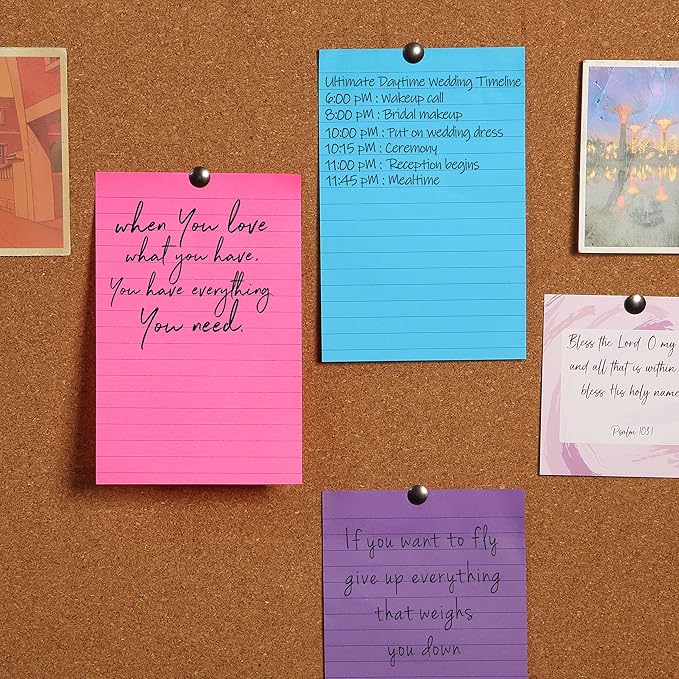 Ultimate Daytime Wedding Timeline
6:00 pM : Wakeup call
8:00 pM : Bridal makeup
10:00 pM : Put on wedding dress
10:15 pM : Ceremony
11:00 pM : Reception begins
11:45 pM : Mealtime
when You love
what you have.
You have everything
You need.
Bless the Lord O my
and all that is within
bless His holy name
Psalm 103:1
If you want to fly
give up everything
that weighs
you down